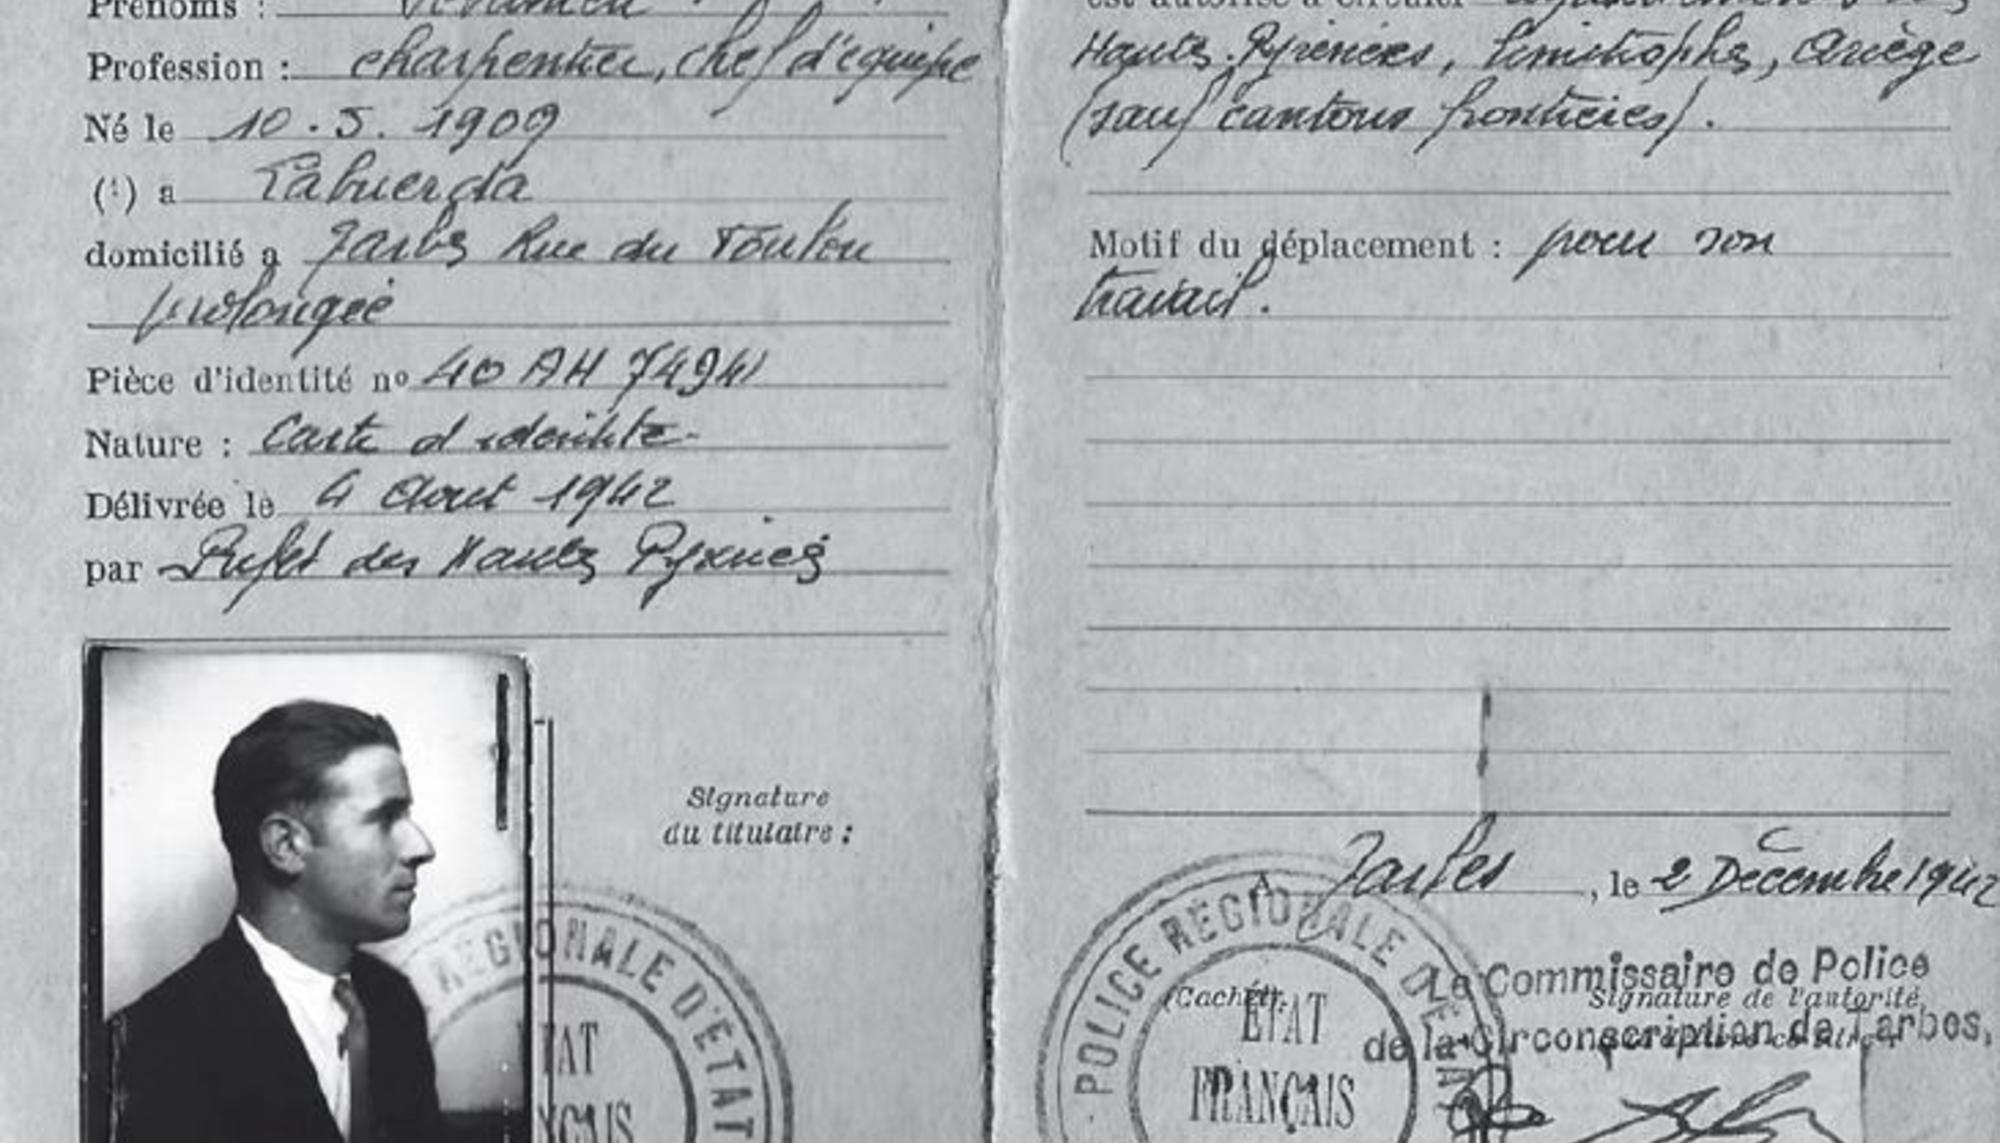 Prénoms :
Profession : charpentier, chef d'équipe
Né le 10.5.1909
(1) a Labuerda
domicilié a Tarbes Rue du Toulon
prolongée
Pièce d'identité no 40 AH 74941
Nature : Carte d'identité
Délivrée le 4 Aout 1942
par Prefet des Hautes Pyrénées
Signature
du titulaire :
RÉGIONALE D'ÉTAT
TAT
NÇAIS
est autorisé à circuler
Hautes-Pyrénées, limitrophes, Ariège
(sauf cantons frontières).
Motif du déplacement : pour son
travail.
A Tarbes, le 2 Décembre 1942
POLICE RÉGIONALE D'ÉTAT
(Cachet).
ÉTAT
FRANÇAIS
Le Commissaire de Police
Signature de l'autorité
de la Circonscription de Tarbes,